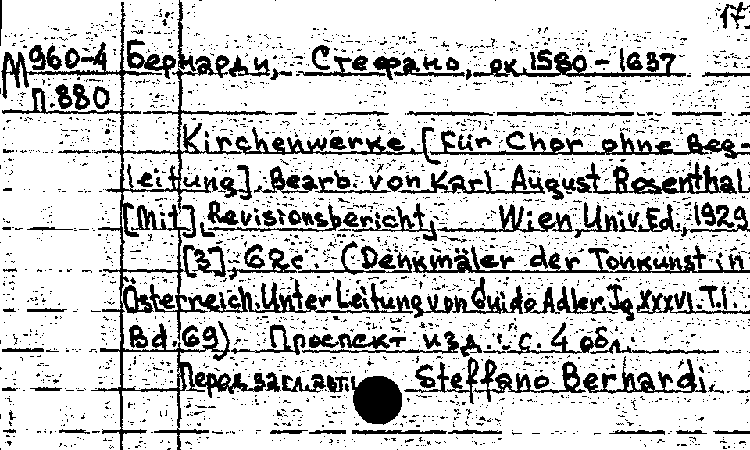 17
М 960-4 Бернарди, Стефано, ок. 1580-1637
п. 880
Kirchenwerke. [Für Chor ohne Beg-
leitung]. Bearb. von Karl August Rosenthal
[Mit] Revisionsbericht, Wien, Univ. Ed., 1929
[3], 62 с. (Denkmäler der Tonkunst in
Österreich. Unter Leitung von Guido Adler. Jg XXXVI. T.1.
Bd. 69). Проспект изд.: с. 4 обл.
Перед загл. авт.: Steffano Bernardi.